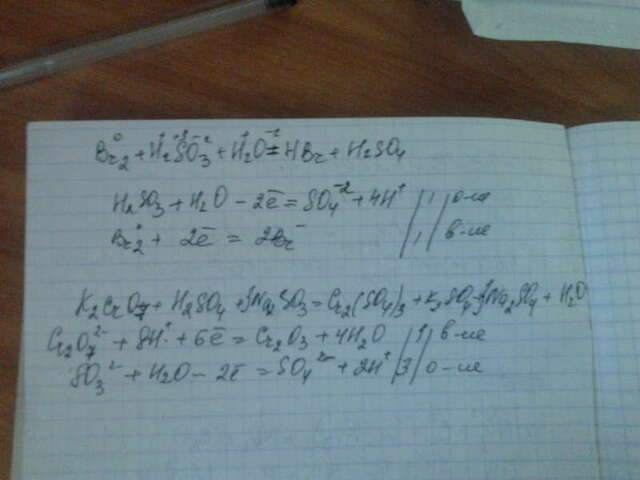 Br₂⁰ + H₂⁺S⁺⁴O₃⁻² + H₂⁺O⁻² = HBr + H₂SO₄
H₂SO₃ + H₂O − 2ē = SO₄⁻² + 4H⁺ | 1 | о-ие
Br₂⁰ + 2ē = 2Br⁻ | 1 | в-ие
K₂CrO₇ + H₂SO₄ + 3Na₂SO₃ = Cr₂(SO₄)₃ + K₂SO₄ + 3Na₂SO₄ + H₂O
Cr₂O₇²⁻ + 8H⁺ + 6ē = Cr₂O₃ + 4H₂O | 1 | в-ие
SO₃²⁻ + H₂O − 2ē = SO₄²⁻ + 2H⁺ | 3 | о-ие